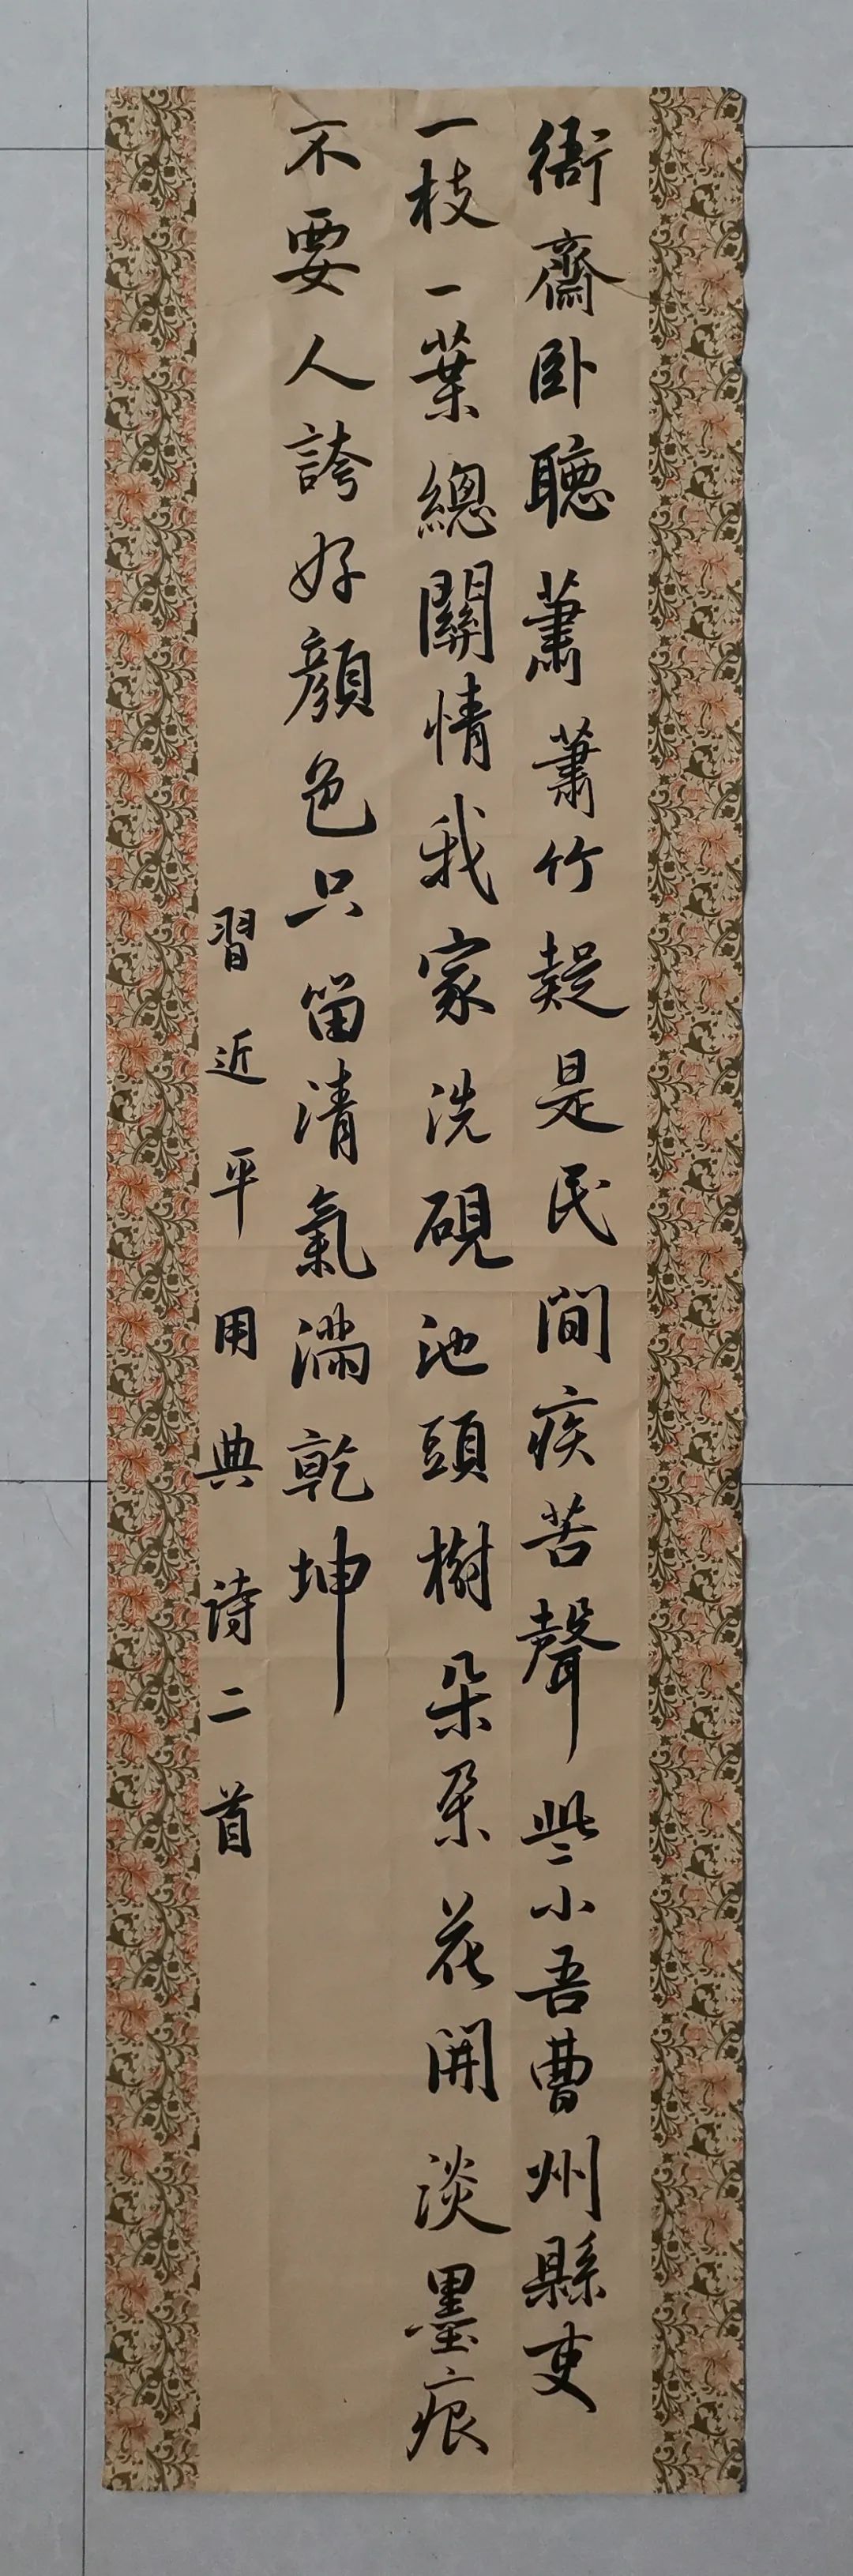 衙齋卧聽蕭蕭竹疑是民間疾苦聲些小吾曹州縣吏
一枝一葉總關情我家洗硯池頭樹朵朵花開淡墨痕
不要人誇好顏色只留清氣滿乾坤
習近平用典詩二首